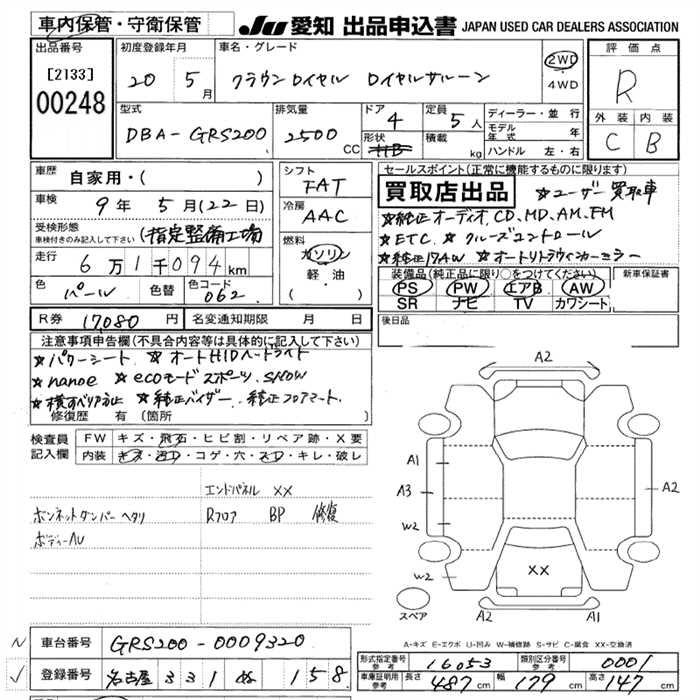 車内保管・守衛保管 JU 愛知 出品申込書 JAPAN USED CAR DEALERS ASSOCIATION
出品番号 [2133] 00248
初度登録年月 20 5月
車名・グレード クラウンロイヤル ロイヤルサルーン
2WD ・ 4WD
評価点 R
外装 C 内装 B
型式 DBA-GRS200
排気量 2500 CC
ドア 4 形状 HB
定員 5人 積載 kg
ディーラー・並行
モデル年式 年
ハンドル 左・右
車歴 自家用・( )
車検 9年 5月(22日)
受検形態 車検付きのみ記入して下さい (指定整備工場
走行 6万1千094km
色 パール 色替 色コード 062
シフト FAT
冷房 AAC
燃料 ガソリン 軽油 ( )
セールスポイント(正常に機能するものに限ります)
買取店出品 ☆ユーザー買取車
☆純正オーディオ.CD.MD.AM.FM
☆ETC ☆クルーズコントロール
☆純正17AW ☆オートリトラクタブルミラー
装備品(純正品に限り○をつけてください) 新車保証書
PS PW エアB AW
SR ナビ TV カワシート
R券 17080円 名変通知期限 月 日
後日品
注意事項申告欄(不具合内容等は具体的に記入して下さい)
☆パワーシート ☆オートHIDヘッドライト
☆nanoe ☆ecoモード スポーツ.SNOW
☆横すべり防止 ☆純正バイザー.純正フロアマート.
修復歴 有 (箇所 )
検査員記入欄 FW キズ・飛石・ヒビ割・リペア跡・X要
内装 キズ・汚れ・コゲ・穴・スレ・キレ・破レ
エンドパネル XX
ボンネットダンパー ヘタリ Rフロア BP 修復
ボディーAU
A2
A1
A3
W2
W2
A2
XX
スペア
A2 A1
A-キズ E-エクボ U-凹み W-補修跡 S-サビ C-腐食 XX-交換済
N 車台番号 GRS200-0009320
✓ 登録番号 名古屋 331 ぬ 158
形式指定番号 参考 16053 類別区分番号 参考 0001
車庫証明用 参考 長さ 487cm 幅 179cm 高さ 147cm